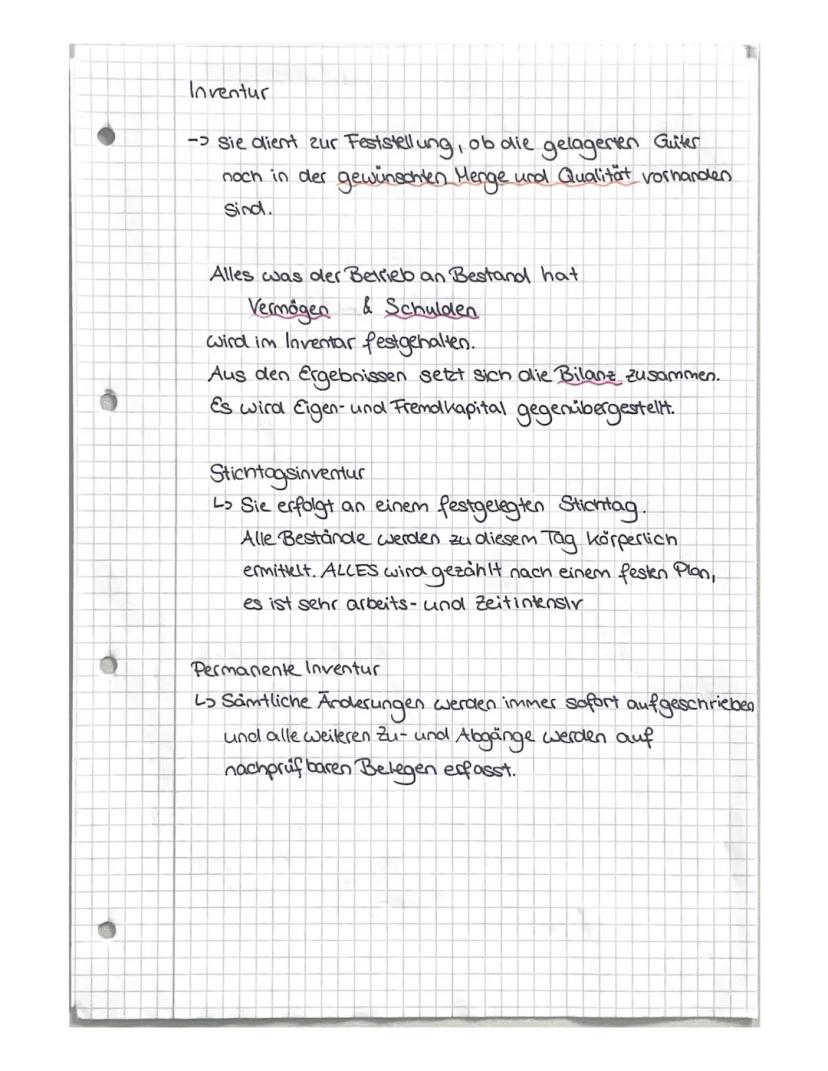 Inventur
-> Sie dient zur Feststellung, ob die gelagerten Güter
noch in der gewünschten Menge und Qualität vorhanden
sind.
Alles was der Betrieb an Bestand hat
Vermögen & Schulden
wird im Inventar festgehalten.
Aus den Ergebnissen setzt sich die Bilanz zusammen.
Es wird Eigen- und Fremdkapital gegenübergestellt.
Stichtagsinventur
↳ Sie erfolgt an einem festgelegten Stichtag.
Alle Bestände werden zu diesem Tag körperlich
ermittelt. ALLES wird gezählt nach einem festen Plan,
es ist sehr arbeits- und zeitintensiv
Permanente Inventur
↳ Sämtliche Änderungen werden immer sofort aufgeschrieben
und alle weiteren Zu- und Abgänge werden auf
nachprüfbaren Belegen erfasst.